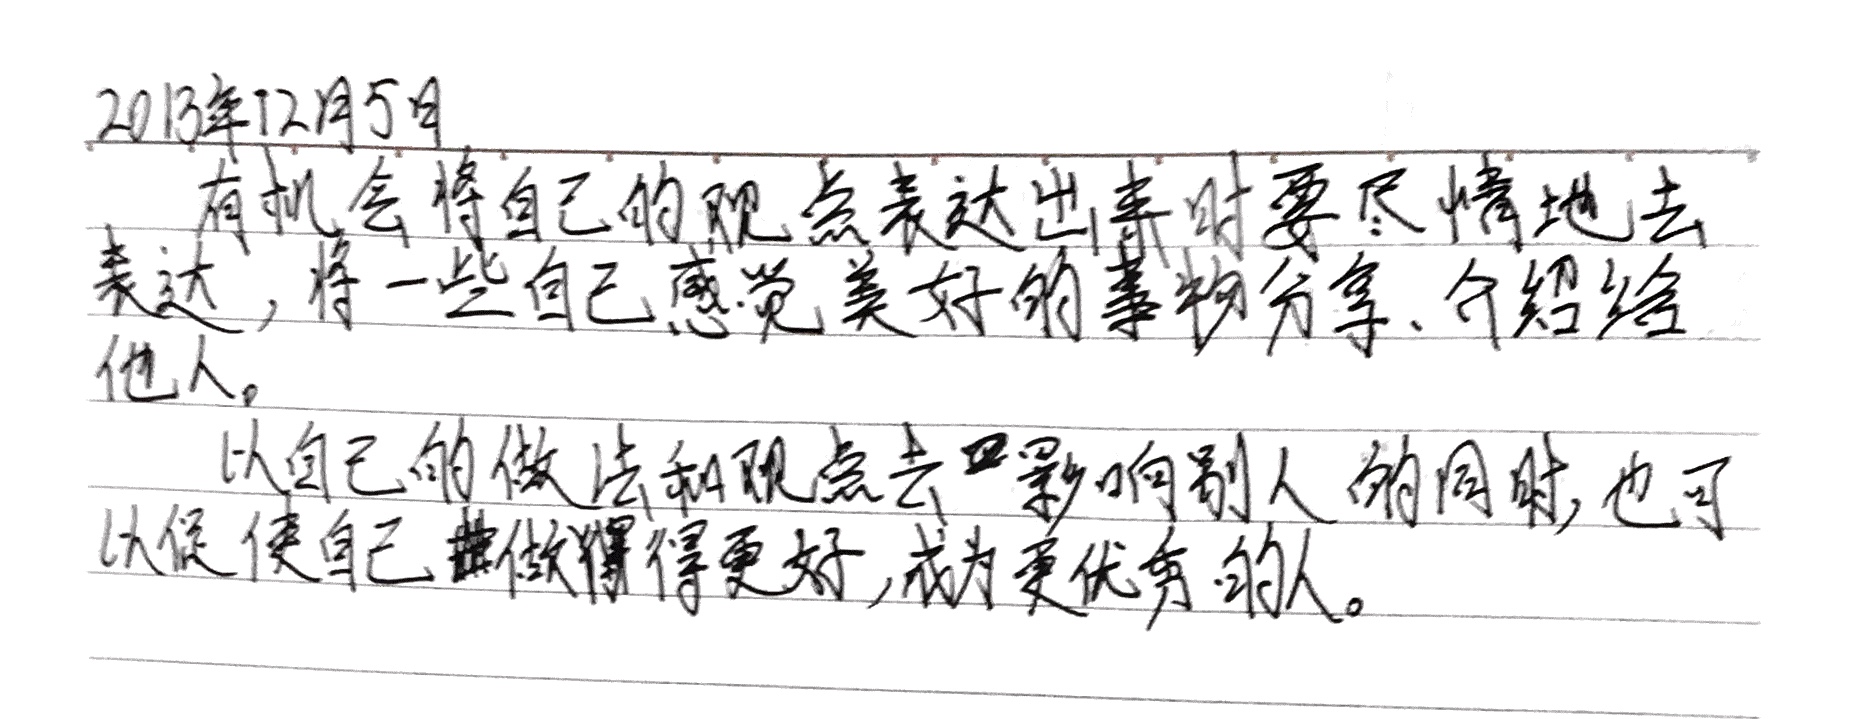 2013年12月5日
有机会将自己的观点表达出来时要尽情地去
表达，将一些自己感觉美好的事物分享、介绍给
他人。
以自己的做法和观点去影响别人的同时，也可
以促使自己做得更好，成为更优秀的人。